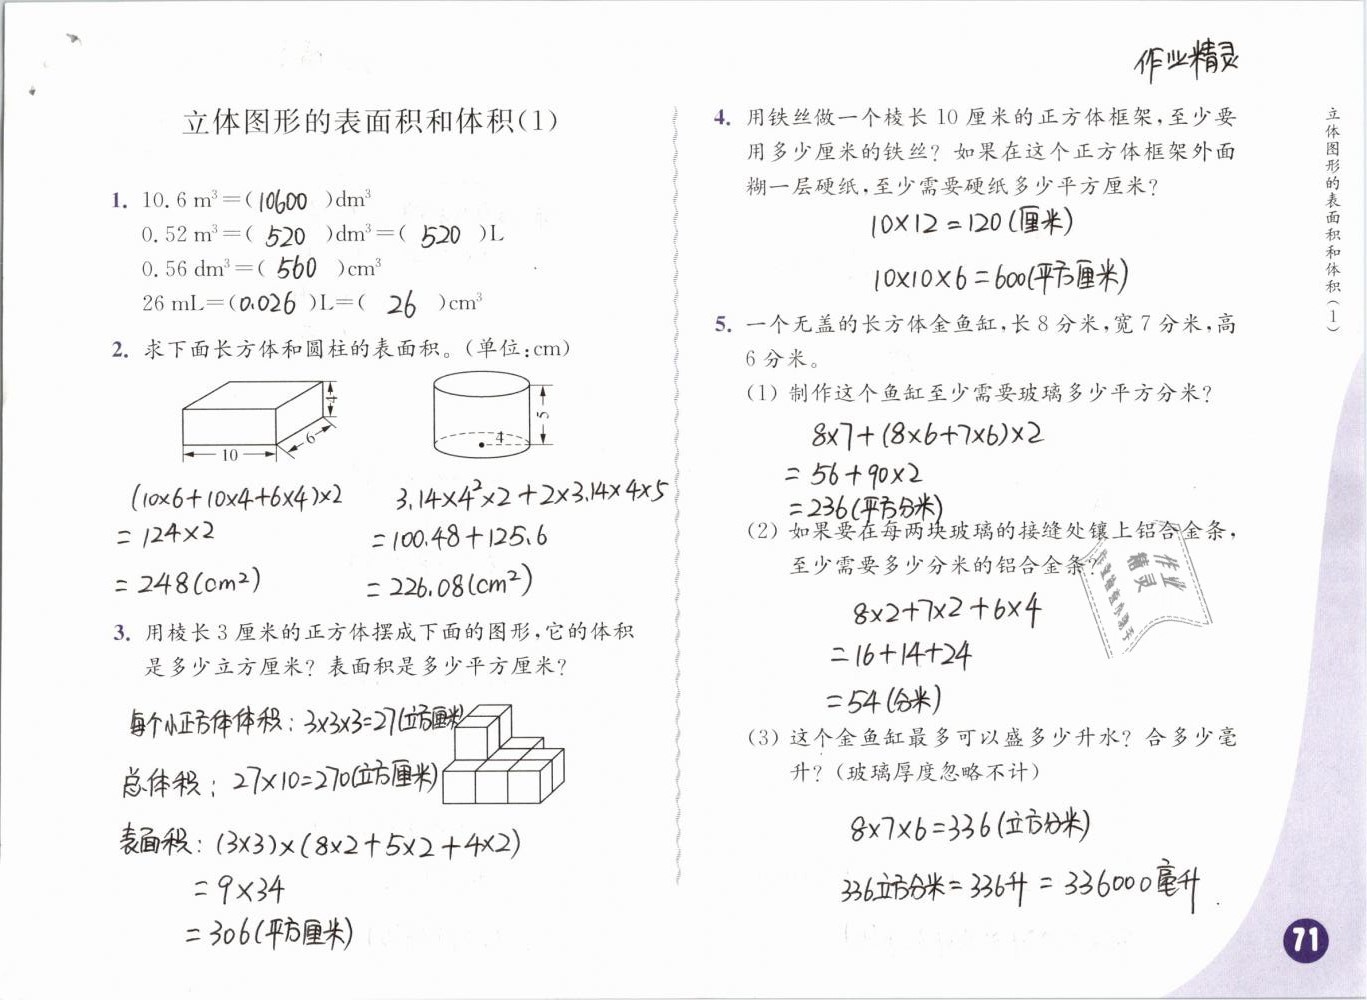 作业精灵
立体图形的表面积和体积(1)
1. 10.6 m³=(10600)dm³
0.52 m³=( 520 )dm³=( 520 )L
0.56 dm³=( 560 )cm³
26 mL=(0.026)L=( 26 )cm³
2. 求下面长方体和圆柱的表面积。(单位:cm)
4
6
10
5
4
(10×6+10×4+6×4)×2
=124×2
=248(cm²)
3.14×4²×2+2×3.14×4×5
=100.48+125.6
=226.08(cm²)
3. 用棱长3厘米的正方体摆成下面的图形,它的体积
是多少立方厘米? 表面积是多少平方厘米?
每个小正方体体积: 3×3×3=27(立方厘米)
总体积: 27×10=270(立方厘米)
表面积: (3×3)×(8×2+5×2+4×2)
=9×34
=306(平方厘米)
4. 用铁丝做一个棱长10厘米的正方体框架,至少要
用多少厘米的铁丝? 如果在这个正方体框架外面
糊一层硬纸,至少需要硬纸多少平方厘米?
10×12=120(厘米)
10×10×6=600(平方厘米)
5. 一个无盖的长方体金鱼缸,长8分米,宽7分米,高
6分米。
(1) 制作这个鱼缸至少需要玻璃多少平方分米?
8×7+(8×6+7×6)×2
=56+90×2
=236(平方分米)
(2) 如果要在每两块玻璃的接缝处镶上铝合金条,
至少需要多少分米的铝合金条?
8×2+7×2+6×4
=16+14+24
=54(分米)
(3) 这个金鱼缸最多可以盛多少升水? 合多少毫
升? (玻璃厚度忽略不计)
8×7×6=336(立方分米)
336立方分米=336升=336000毫升
作业
精灵
立体图形的表面积和体积(1)
71